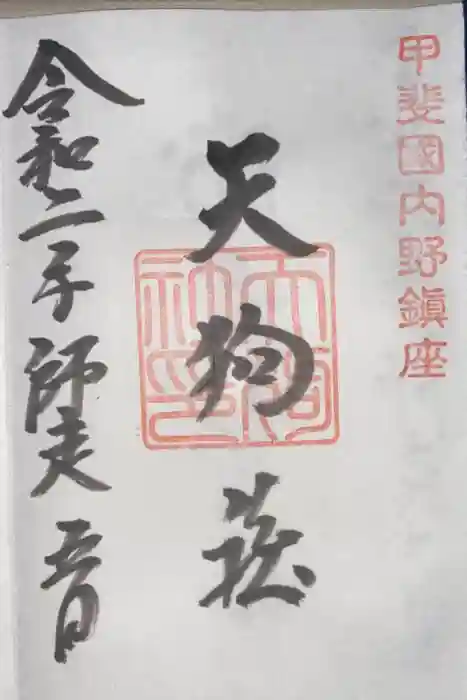 甲斐國内野鎮座
天狗
天狗社印
令和二年師走五日